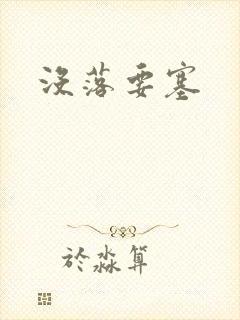 没落要塞
於淼算